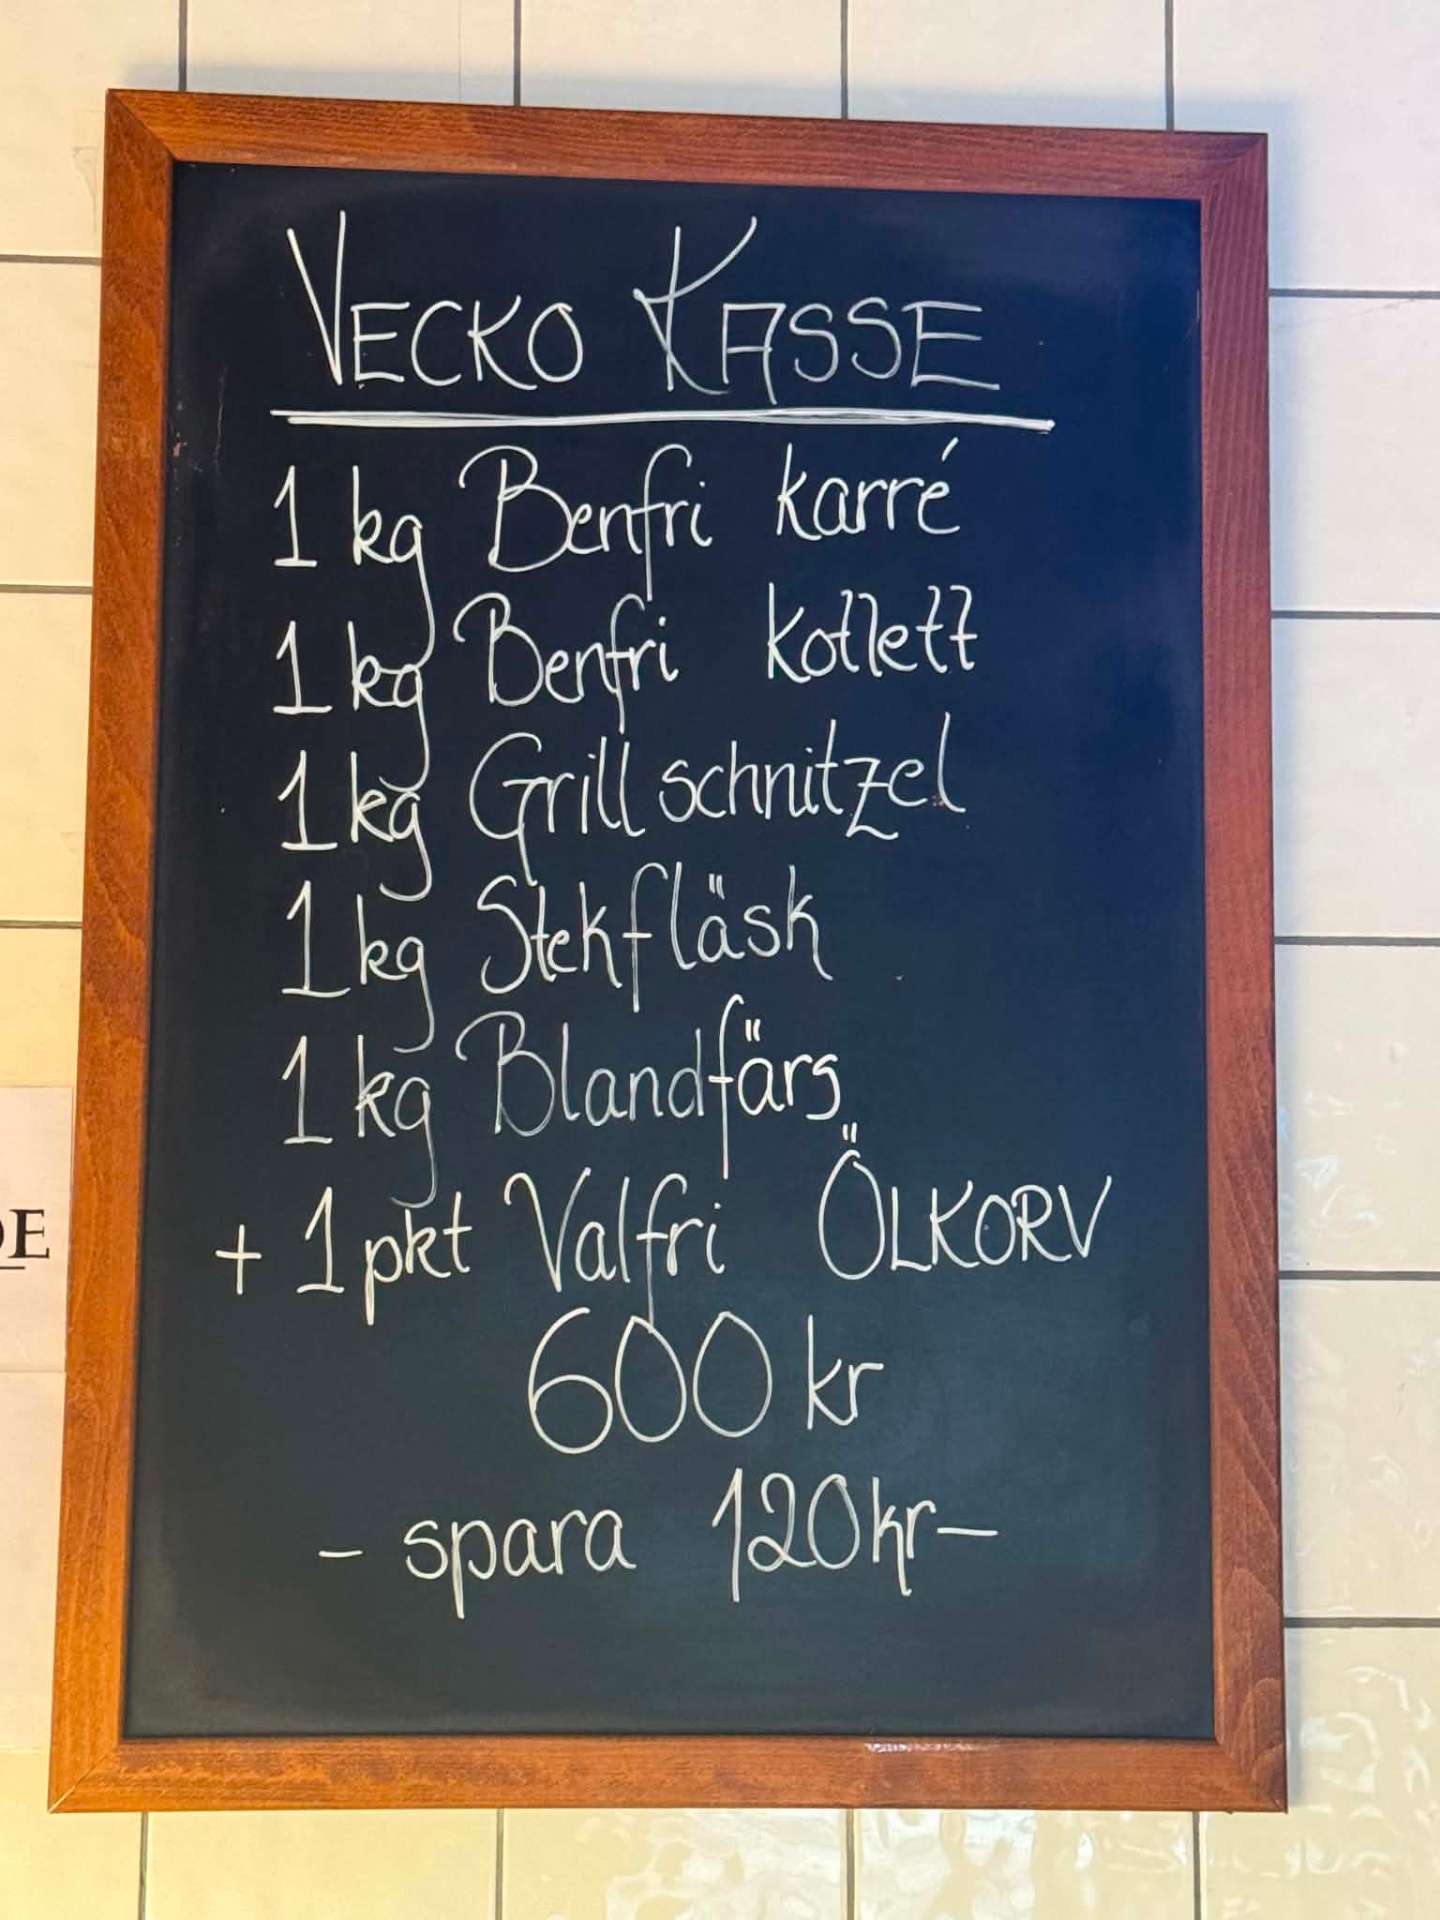 VECKO KASSE
1 kg Benfri karré
1 kg Benfri Kotlett
1 kg Grillschnitzel
1 kg Stekfläsk
1 kg Blandfärs
+ 1 pkt Valfri ÖLKORV
600 kr
- spara 120 kr -